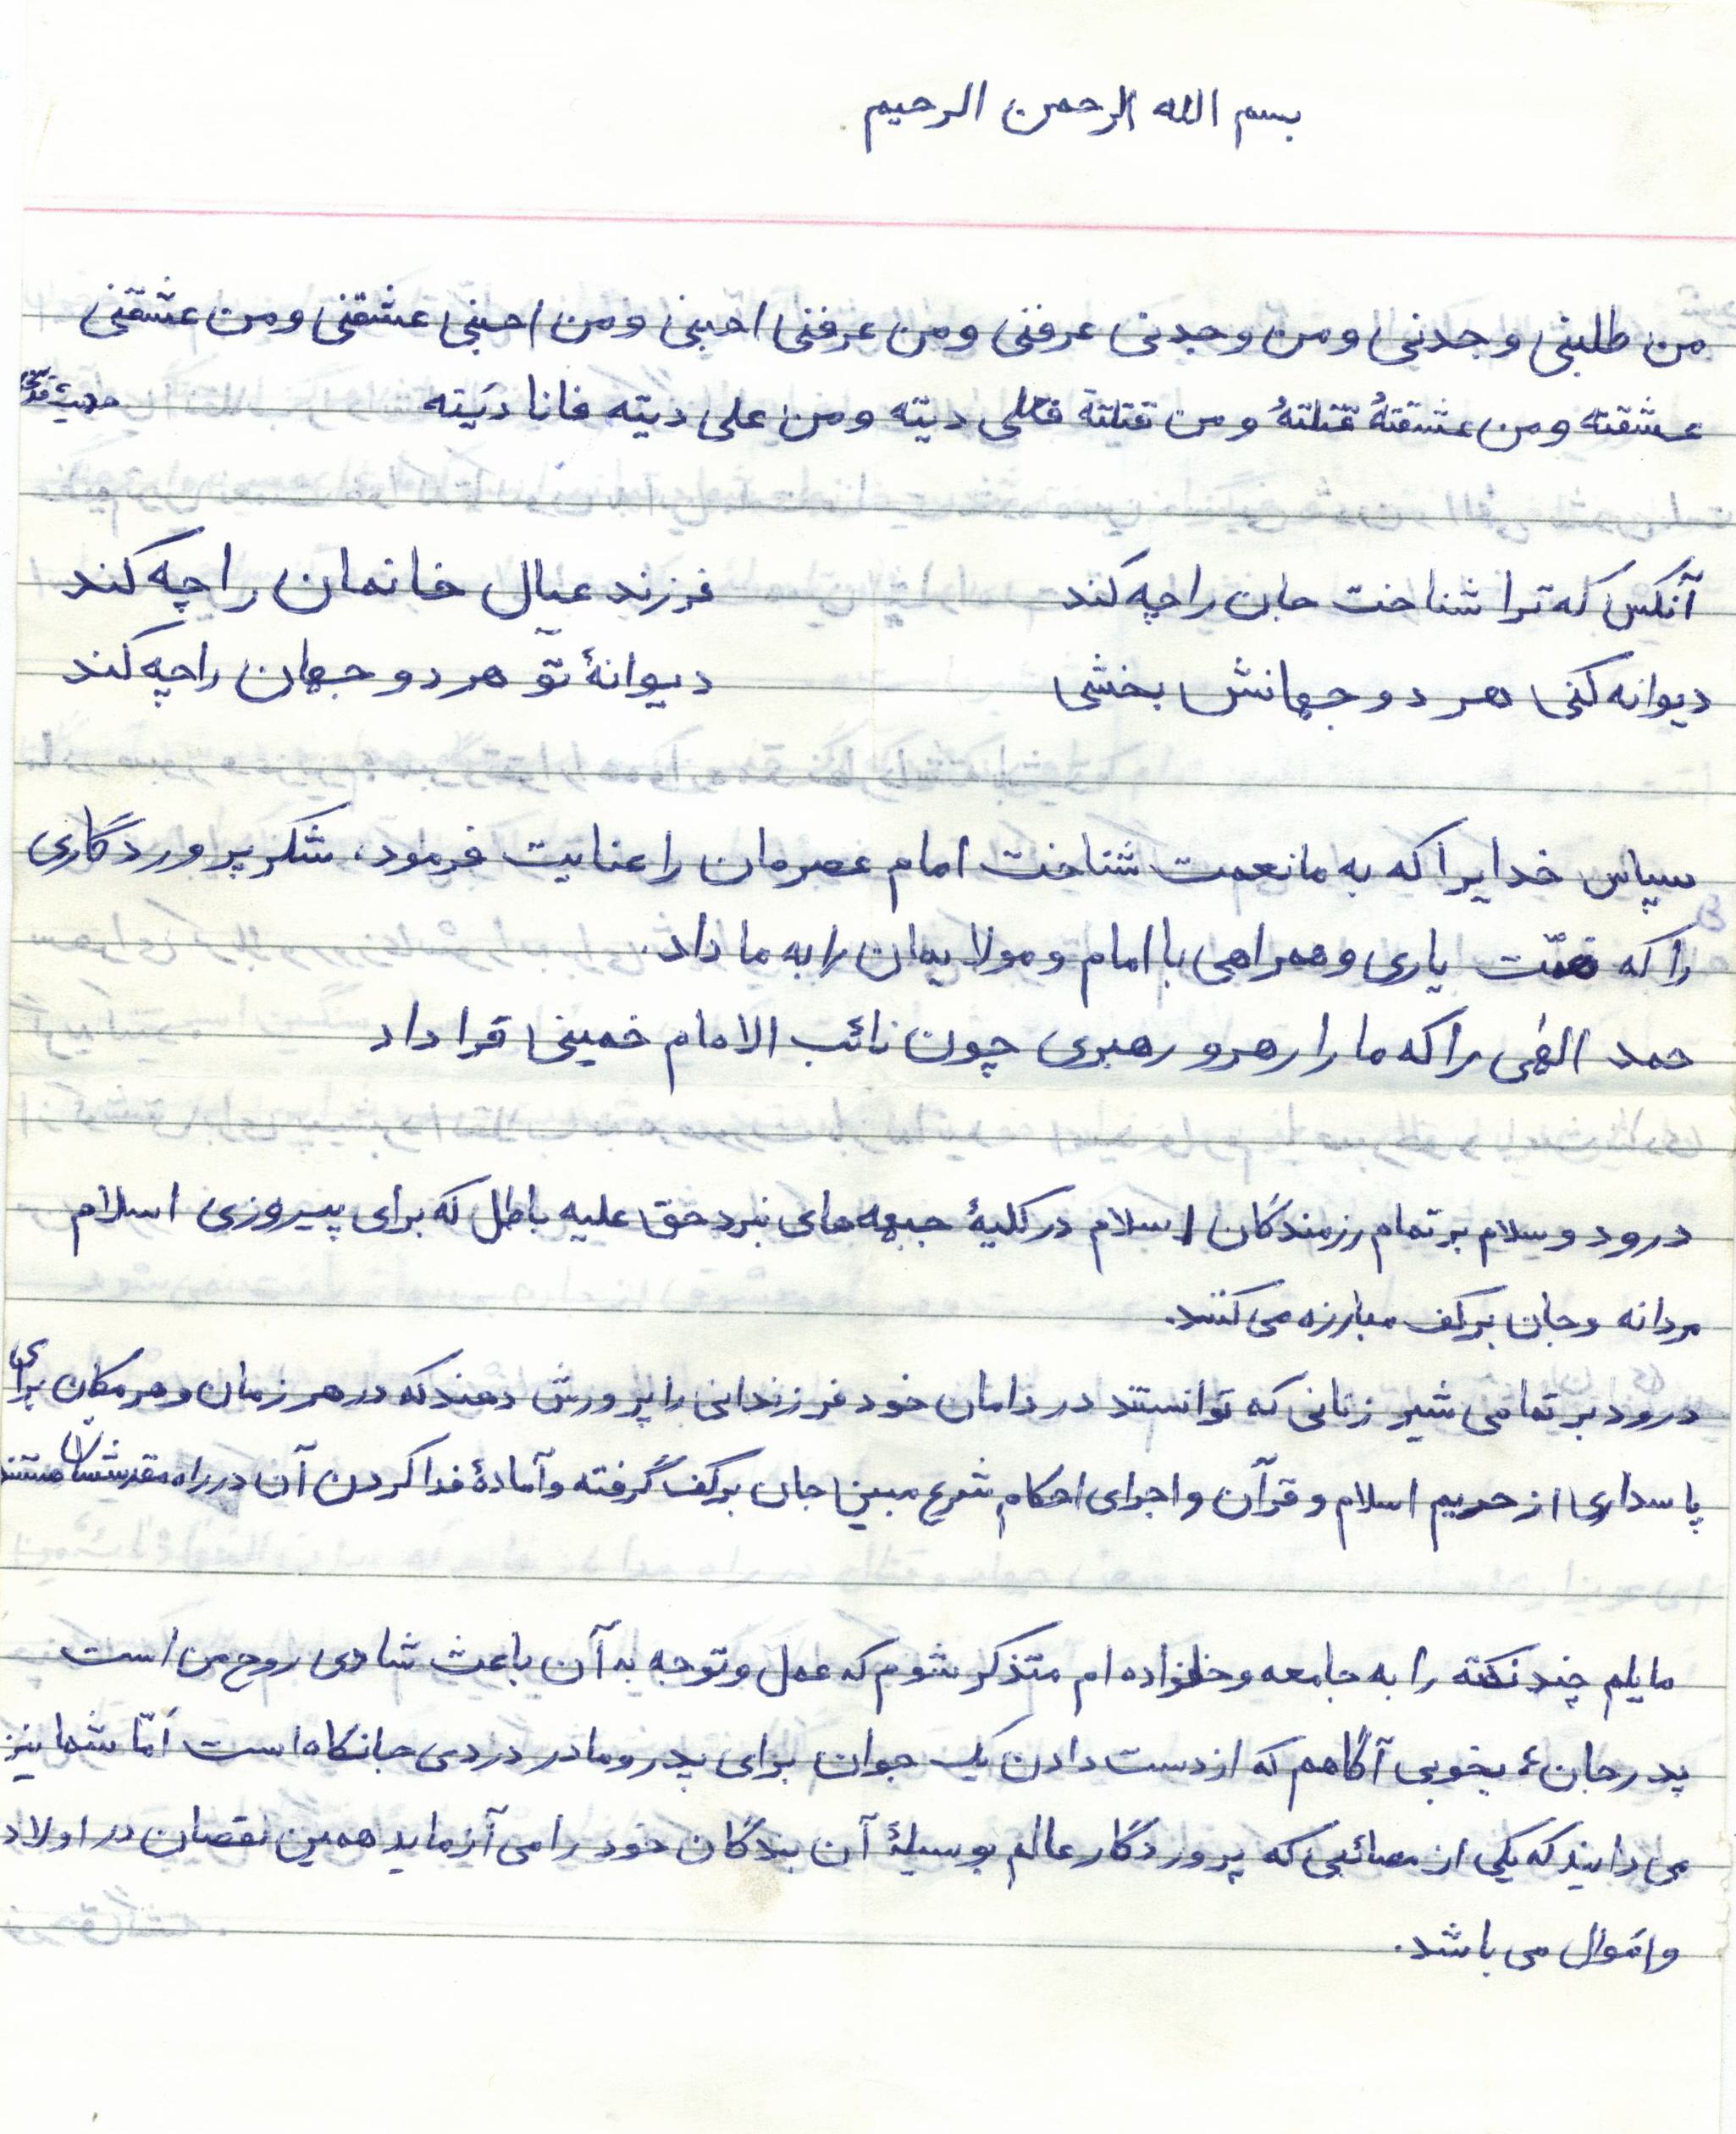 بسم الله الرحمن الرحیم
من طلبنی وجدنی ومن وجدنی عرفنی ومن عرفنی احبنی ومن احبنی عشقنی ومن عشقنی
عشقته ومن عشقتهُ قتلتهُ ومن قتلته فعلی دیته ومن علی دیته فانا دیَته حدیث قدسی
آنکس که ترا شناخت جان را چه کند فرزند عیال خانمان را چه کند
دیوانه کنی هر دو جهانش بخشی دیوانهٔ تو هر دو جهان را چه کند
سپاس خدایرا که به ما نعمت شناخت امام عصرمان را عنایت فرمود، شکر پروردگاری
را که همّت یاری و همراهی با امام و مولایمان را به ما داد.
حمد الهی را که ما را رهرو رهبری چون نائب الامام خمینی قرا داد
درود وسلام بر تمام رزمندگان اسلام در کلیهٔ جبهه‌های نبرد حق علیه باطل که برای پیروزی اسلام
مردانه وجان برکف مبارزه می‌کنند.
درود بر تمامی شیر زنانی که توانستند در دامان خود فرزندانی را پرورش دهند که در هر زمان و هر مکان برای
پاسداری از حریم اسلام و قرآن و اجرای احکام شرع مبین جان برکف گرفته و آمادهٔ فدا کردن آن در راه مقدسشان هستند
مایلم چند نکته را به جامعه و خانواده ام متذکر شوم که عمل و توجه به آن باعث شادی روح من است
پدرجان، بخوبی آگاهم که از دست دادن یک جوان برای پدر و مادر دردی جانکاه است امّا شما نیز
می دانید که یکی از مصائبی که پروردگار عالم بوسیلهٔ آن بندگان خود را می آزماید همین نقصان در اولاد
واموال می باشد.